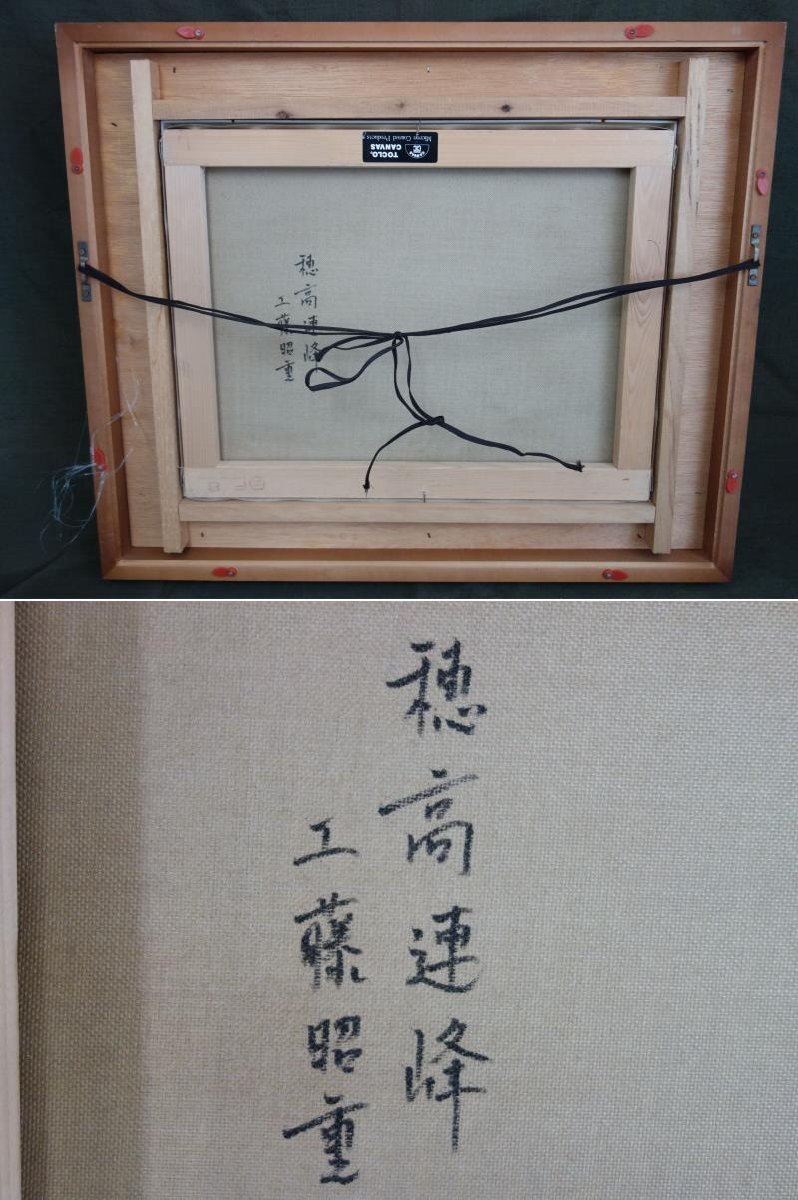 TOCLO.
CANVAS
Micron Coated Products
穂高連峰
工藤昭重
穂高連峰
工藤昭重